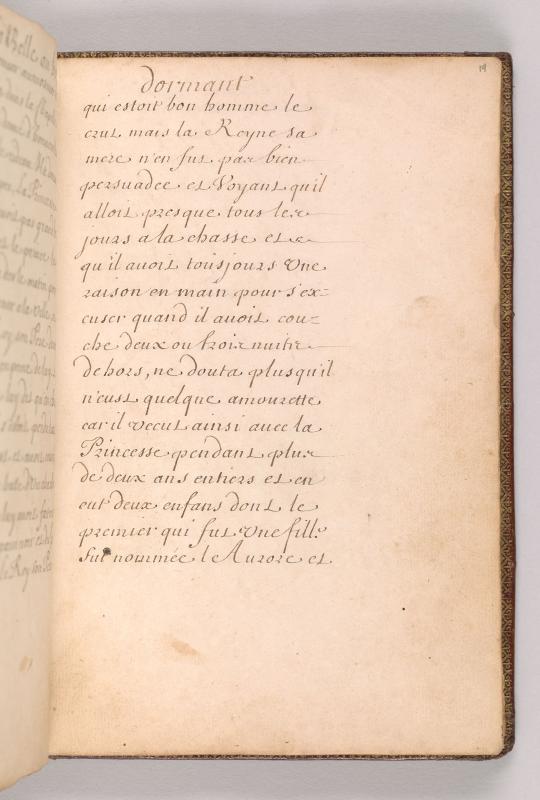 19
dormant
qui estoit bon homme le
crut mais la Reyne sa
mere n'en fut pas bien
persuadee et Voyant qu'il
alloit presque tous les
jours a la chasse et
qu'il avoit tousjours Une
raison en main pour s'ex=
cuser quand il avoit cou=
che deux ou trois nuits
dehors, ne douta plus qu'il
n'eust quelque amourette
car il vecut ainsi avec la
Princesse pendant plus
de deux ans entiers et en
eut deux enfans dont le
premier qui fut Une fille
fut nommée le Aurore et